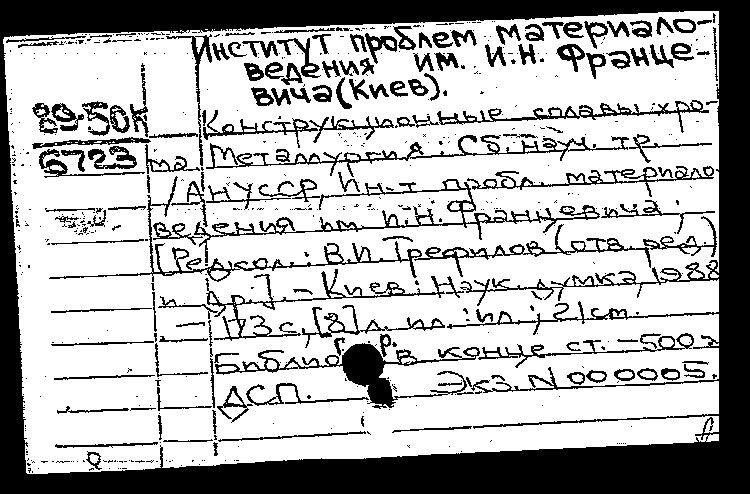 Институт проблем материало-
ведения им. И.Н. Франце-
вича (Киев).
89-50К
6723
Конструкционные сплавы хро-
ма Металлургия: Сб. науч. тр.
/АН УССР, Ин-т пробл. материало-
ведения им. И.Н. Францевича;
[Редкол.: В.И. Трефилов (отв. ред.)
и др.]. - Киев: Наук. думка, 1988
- 173 с., [8] л. ил. : ил. ; 21 cm.
Библиогр. в конце ст. - 500 э
ДСП. Экз. N 000005.